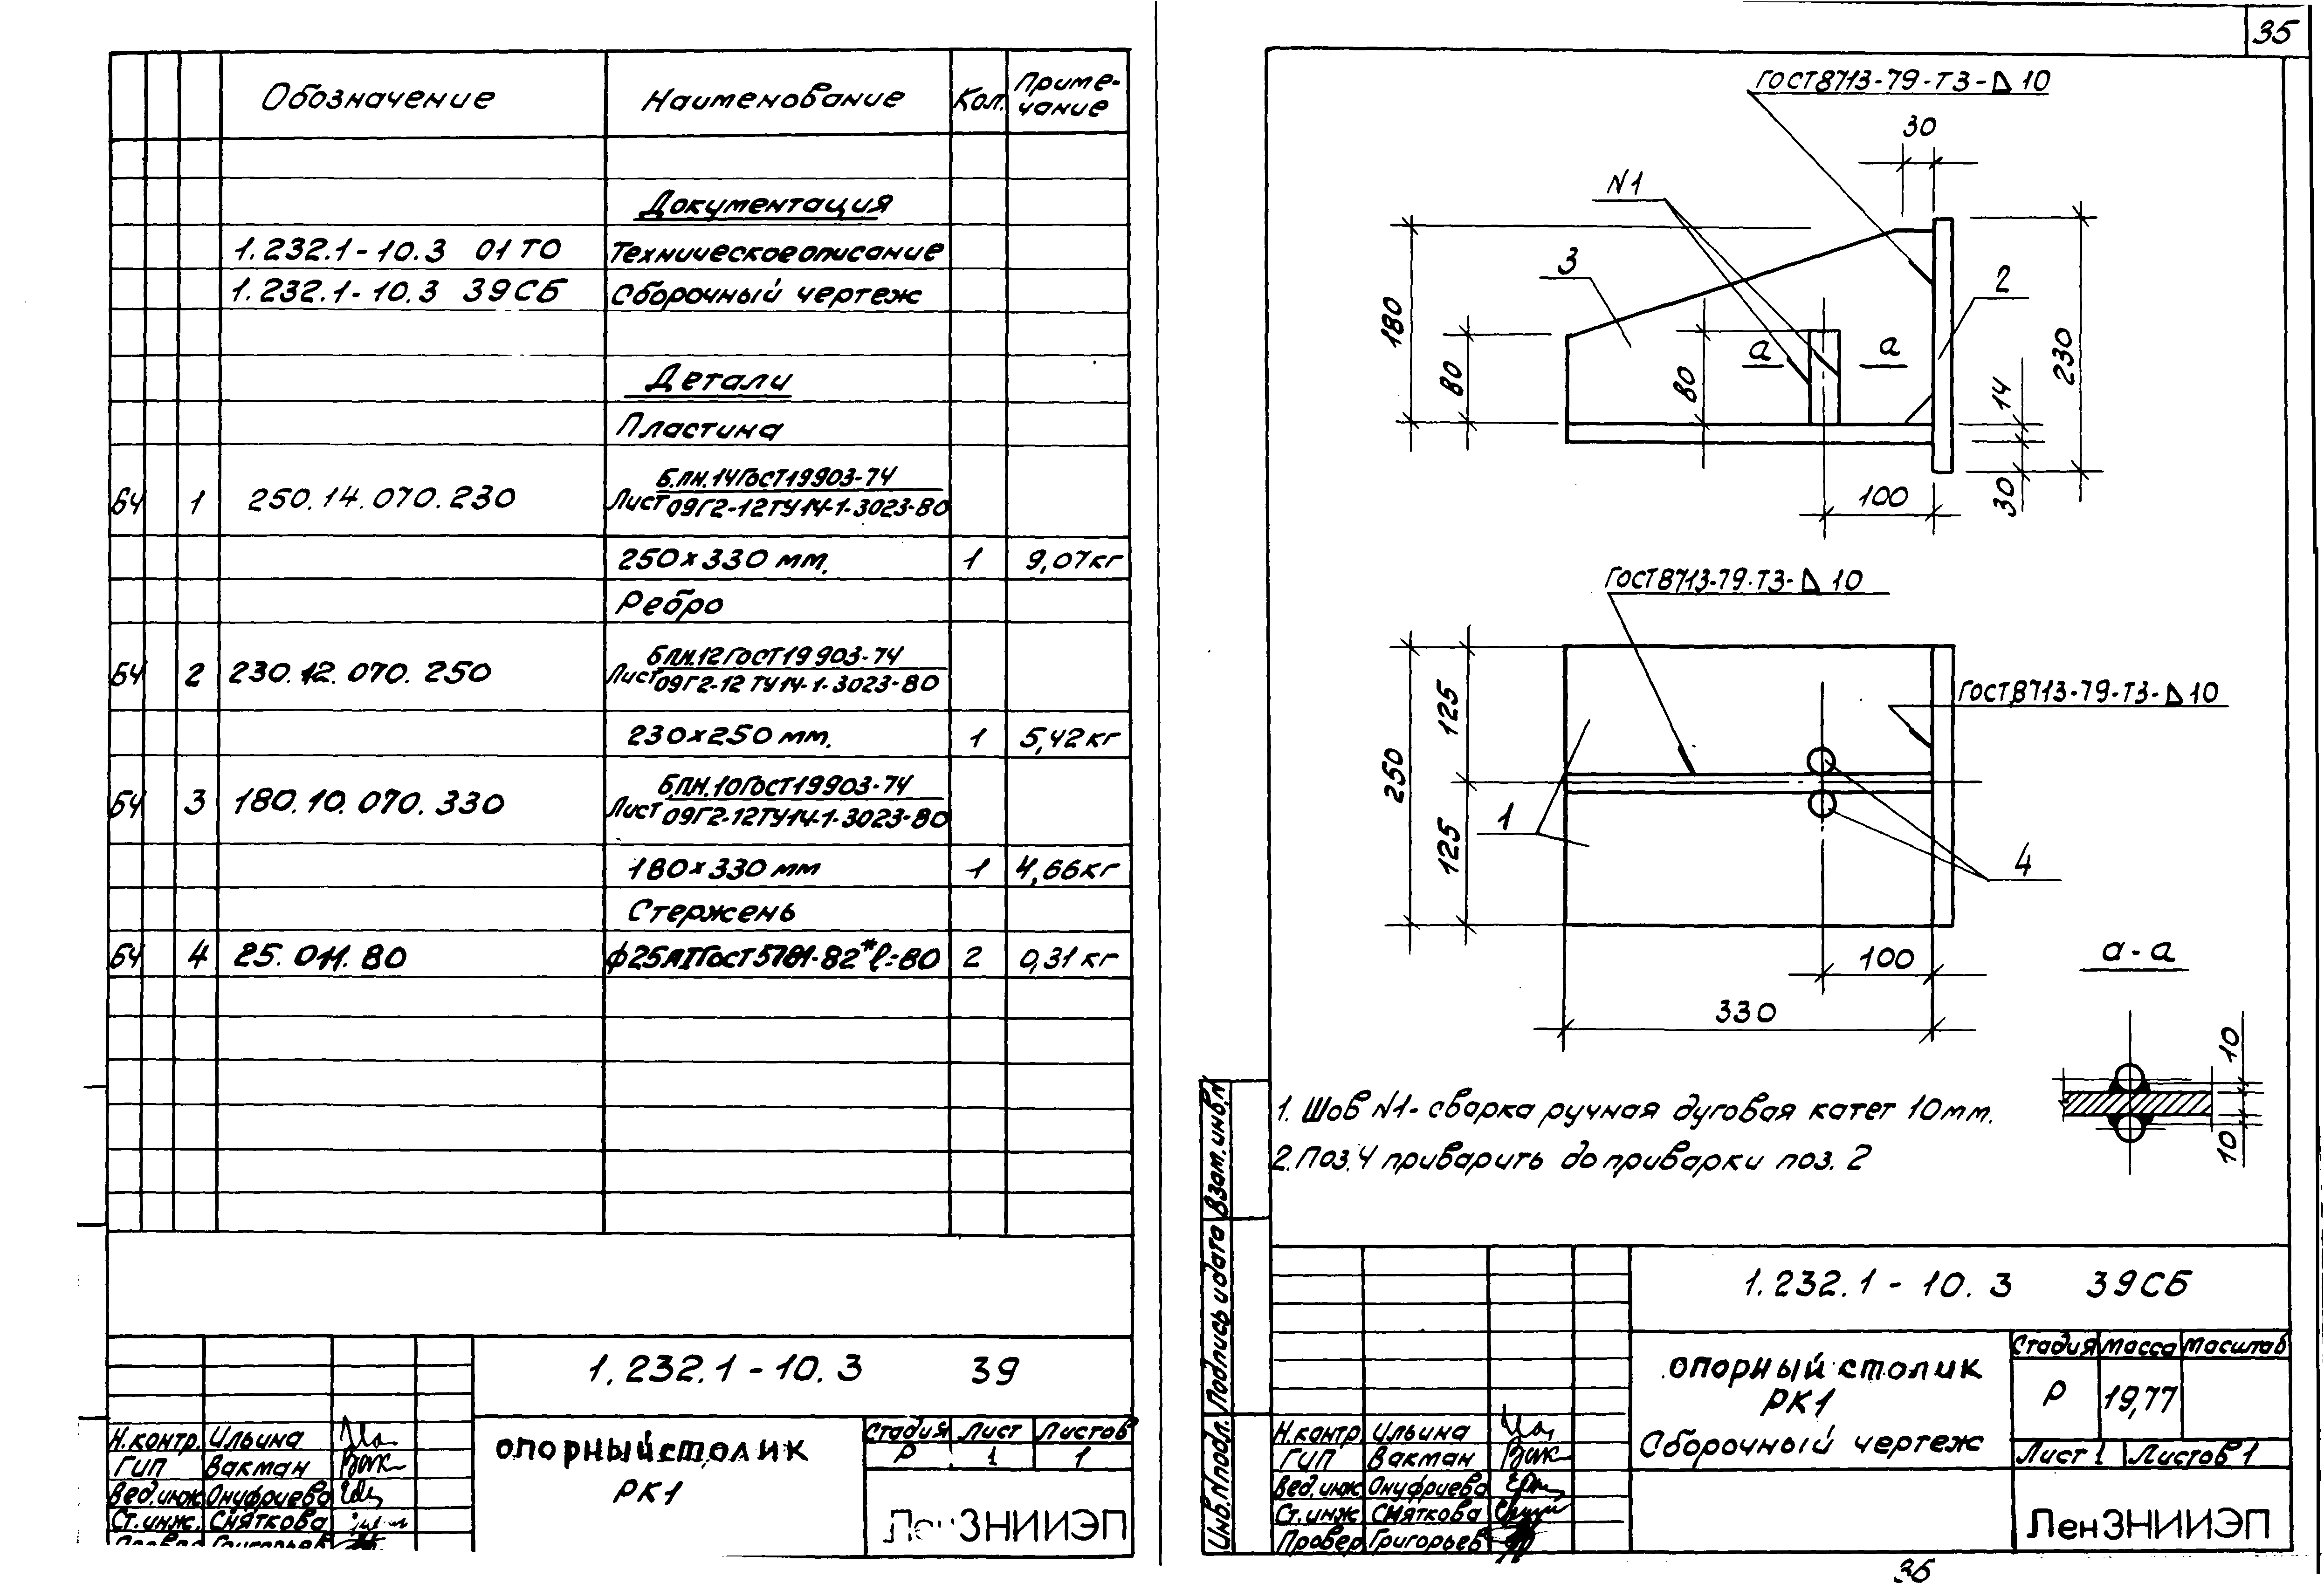 Обозначение Наименование Кол. Приме-
чание
Документация
1.232.1-10.3 01ТО Техническое описание
1.232.1-10.3 39СБ Сборочный чертеж
Детали
Пластина
Б.ПН.14ГОСТ19903-74
БЧ 1 250.14.070.230 Лист 09Г2-12ТУ14-1-3023-80
250×330 мм. 1 9,07кг
Ребро
Б.ПН.12ГОСТ19903-74
БЧ 2 230.12.070.250 Лист 09Г2-12ТУ14-1-3023-80
230×250 мм. 1 5,42кг
Б.ПН.10ГОСТ19903-74
БЧ 3 180.10.070.330 Лист 09Г2-12ТУ14-1-3023-80
180×330 мм 1 4,66кг
Стержень
БЧ 4 25.011.80 ф25АIГОСТ5781-82* ℓ=80 2 0,31кг
1.232.1-10.3 39
Н.контр. Ильина
ГИП Вакман
Вед.инж. Онуфриева
Ст.инж. Сняткова
опорный столик
РК1
Стадия Лист Листов
Р 1 1
ЛенЗНИИЭП
35
ГОСТ8713-79-Т3-⊿10
30
N1
3
2
180
80
80
а а
230
14
30
100
ГОСТ8713-79-Т3-⊿10
ГОСТ8713-79-Т3-⊿10
250
125
125
1
4
100
330
а-а
10
10
1. Шов N1- сварка ручная дуговая катет 10мм.
2. Поз.4 приварить до приварки поз. 2
Взам.инв.N
Подпись и дата
Инв.N подл.
1.232.1-10.3 39СБ
опорный столик
РК1
Сборочный чертеж
Стадия Масса Масштаб
Р 19,77
Лист 1 Листов 1
Н.контр. Ильина
ГИП Вакман
Вед.инж. Онуфриева
Ст.инж. Сняткова
Провер. Григорьев
ЛенЗНИИЭП
36